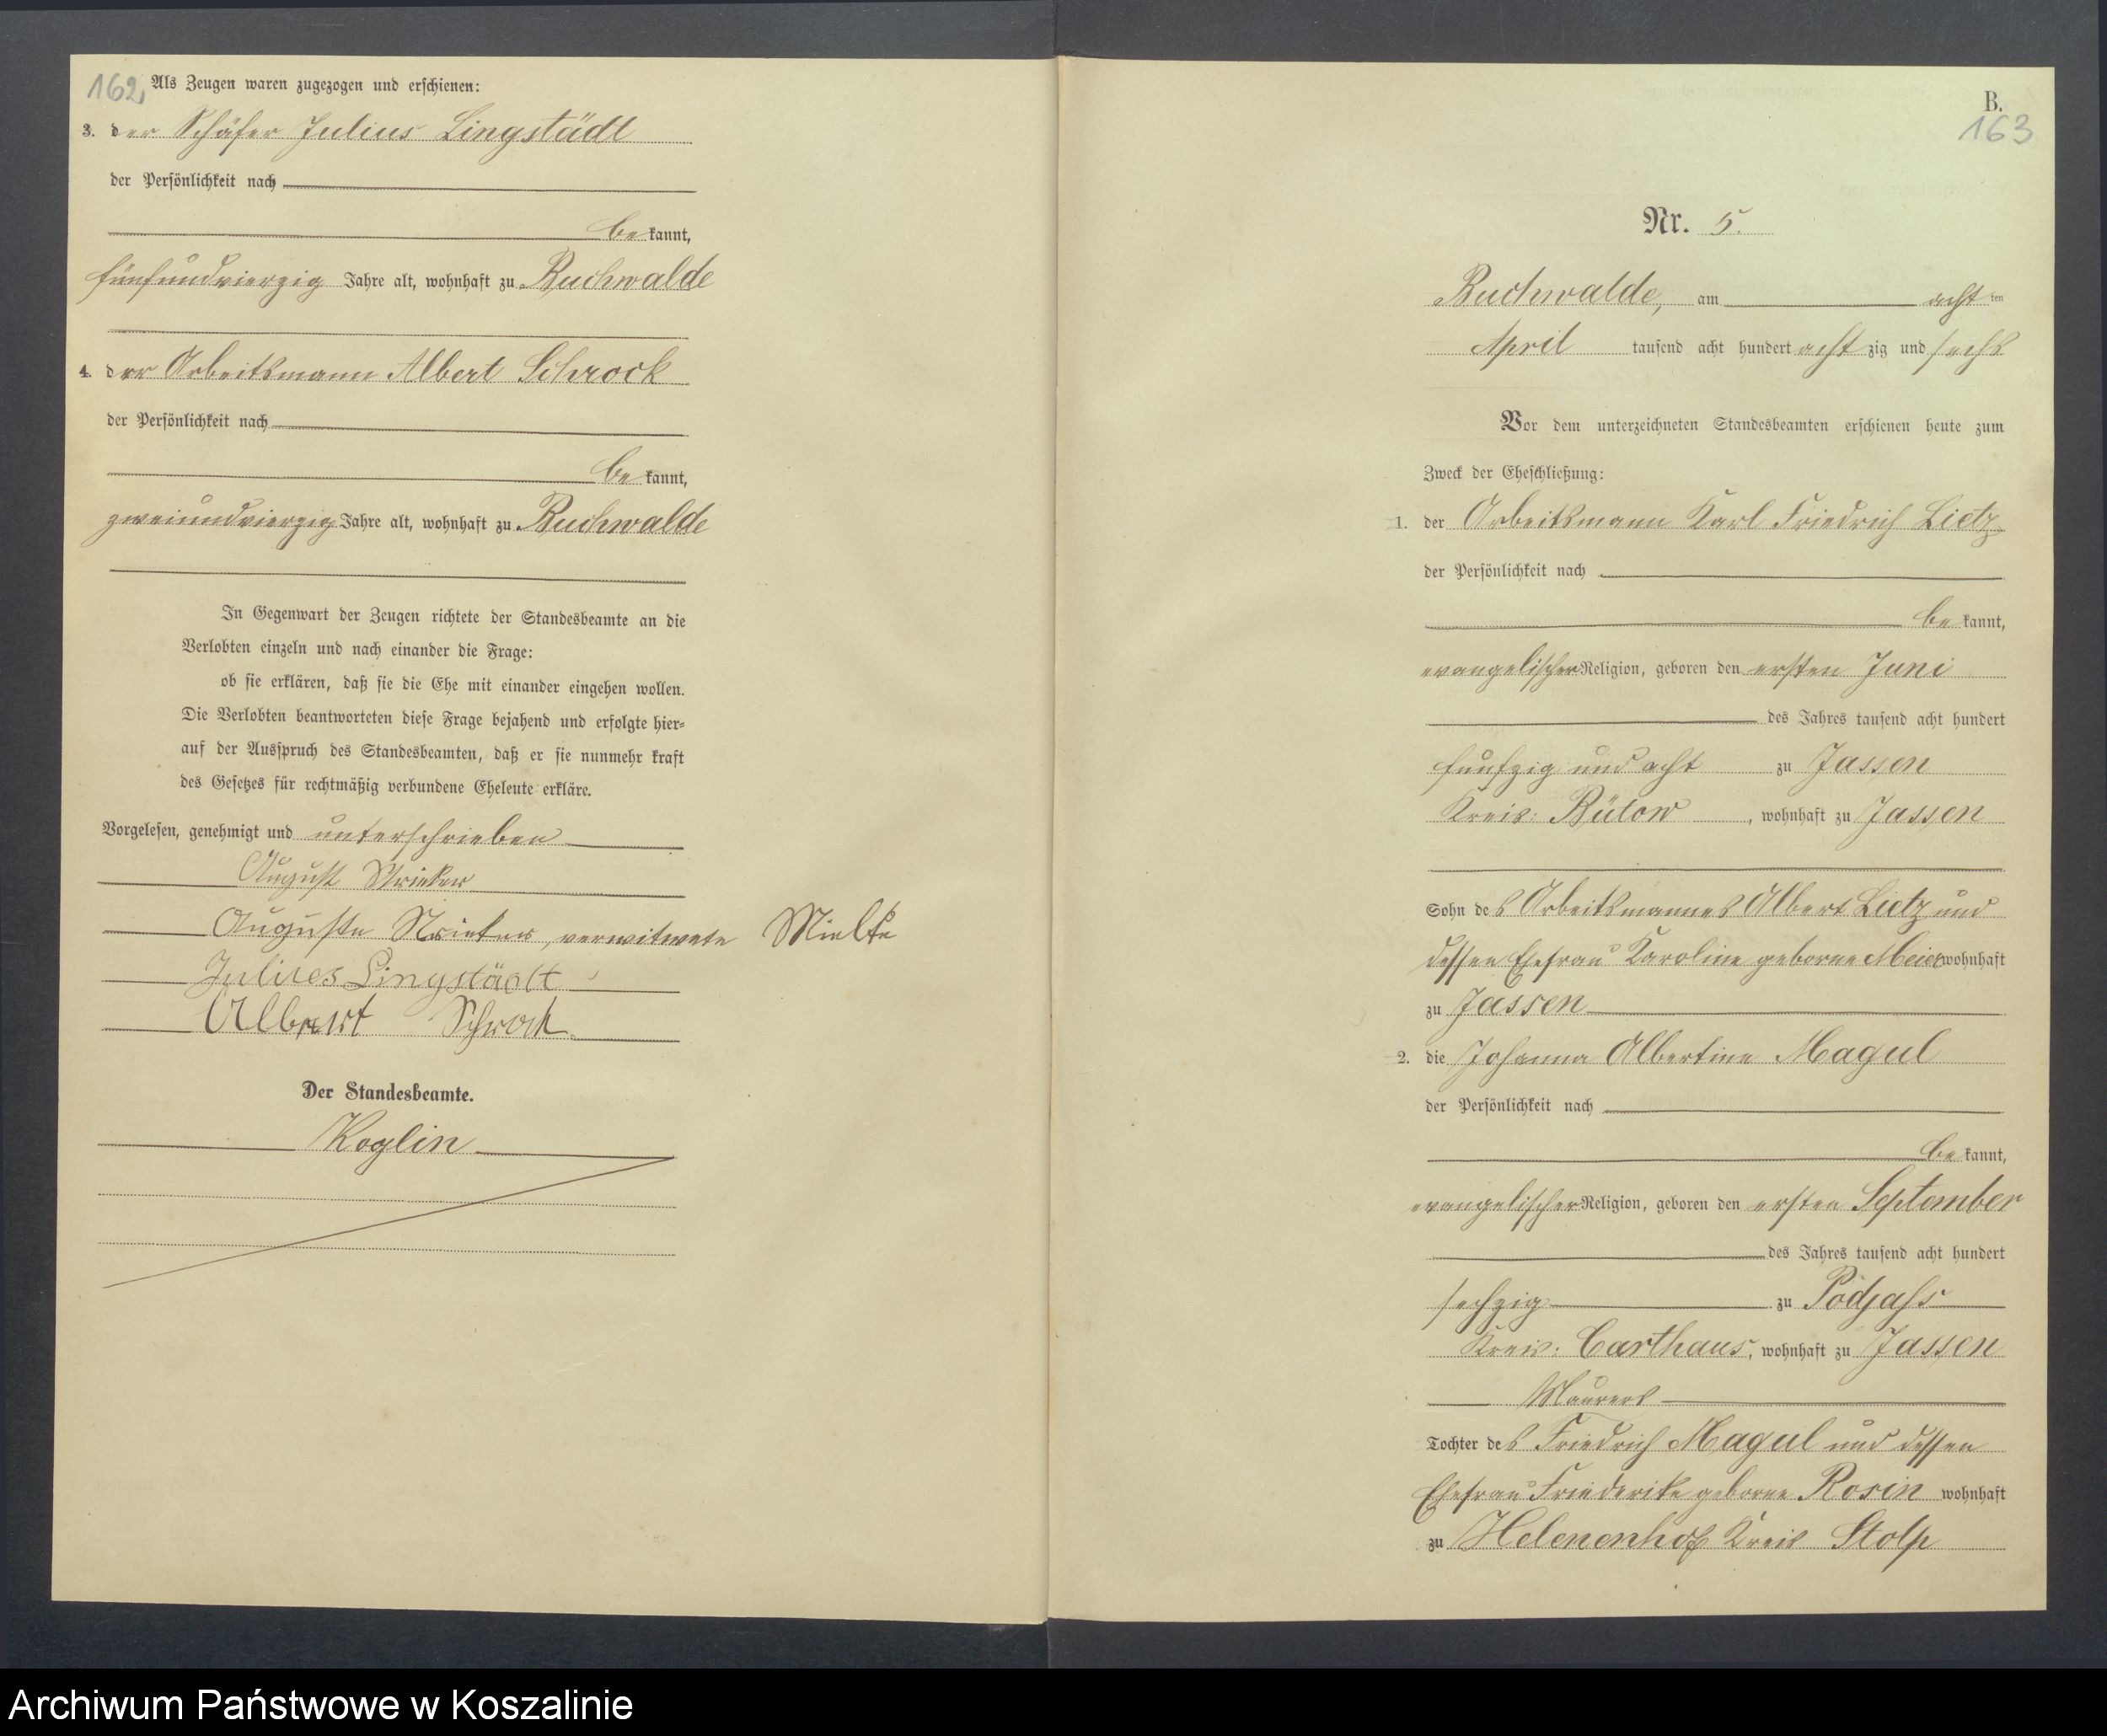 162
Als Zeugen waren zugezogen und erschienen:
3. der Schäfer Julius Lingstädt
der Persönlichkeit nach
be kannt,
fünfundvierzig Jahre alt, wohnhaft zu Buchwalde
4. der Arbeitsmann Albert Schrock
der Persönlichkeit nach
be kannt,
zweiundvierzig Jahre alt, wohnhaft zu Buchwalde
In Gegenwart der Zeugen richtete der Standesbeamte an die
Verlobten einzeln und nach einander die Frage:
ob sie erklären, daß sie die Ehe mit einander eingehen wollen.
Die Verlobten beantworteten diese Frage bejahend und erfolgte hier-
auf der Ausspruch des Standesbeamten, daß er sie nunmehr kraft
des Gesetzes für rechtmäßig verbundene Eheleute erkläre.
Vorgelesen, genehmigt und unterschrieben
August
Auguste verwitwete Mielke
Julius Lingstädt
Albert Schrock
Der Standesbeamte.
Koglin
B.
163
Nr. 5.
Buchwalde, am acht ten
April tausend acht hundert acht zig und sechs
Vor dem unterzeichneten Standesbeamten erschienen heute zum
Zweck der Eheschließung:
1. der Arbeitsmann Karl Friedrich Lietz
der Persönlichkeit nach
be kannt,
evangelischer Religion, geboren den ersten Juni
des Jahres tausend acht hundert
funfzig und acht zu Jassen
Kreis: Bütow, wohnhaft zu Jassen
Sohn des Arbeitsmannes Albert Lietz und
dessen Ehefrau Karoline geborne Meier wohnhaft
zu Jassen
2. die Johanna Albertine Magul
der Persönlichkeit nach
be kannt,
evangelischer Religion, geboren den ersten September
des Jahres tausend acht hundert
sechzig zu Podjass
Kreis: Carthaus, wohnhaft zu Jassen
Maurers
Tochter des Friedrich Magul und dessen
Ehefrau Friederike geborne Rosin wohnhaft
zu Helenenhof Kreis Stolp
Archiwum Państwowe w Koszalinie